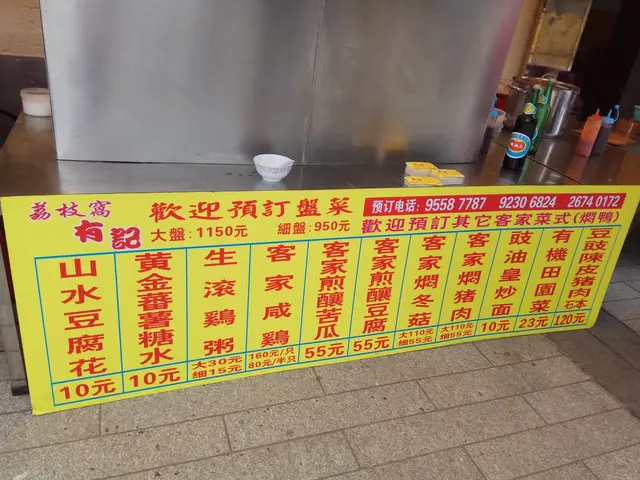 荔枝窩
有記
歡迎預訂盤菜
大盤：1150元 細盤：950元
预订电话：9558 7787 9230 6824 2674 0172
歡迎預訂其它客家菜式(燜鴨)
山水豆腐花
10元
黃金蕃薯糖水
10元
生滾鷄粥
大30元
细15元
客家咸鷄
160元/只
80元/半只
客家煎釀苦瓜
55元
客家煎釀豆腐
55元
客家燜冬菇
大110元
细55元
客家燜猪肉
大110元
细55元
豉油皇炒面
10元
有機田園菜
23元
豆豉陳皮猪肉
石本
120元